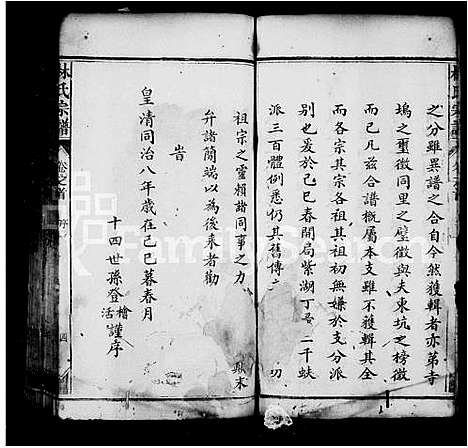 之分雖異譜之合自今然獲輯者亦第寺
塢之璽徵同里之璧徵與夫東坑之榜徵
而已凡茲合譜概屬本支雖不獲輯其全
而各宗其宗各祖其祖初無嫌於支分派
別也爰於己巳春開局紫湖丁 二千
派三百體例悉仍其舊傳
祖宗之靈賴諸同事之力
弁諸簡端以為後來者勸
旹
皇清同治八年歲在己巳暮春月
十四世孫登檜活謹序
林氏宗譜
卷之首
序
四
FamilySearch